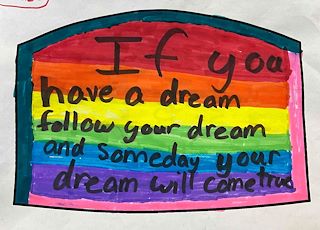 If you
have a dream
follow your dream
and someday your
dream will come true